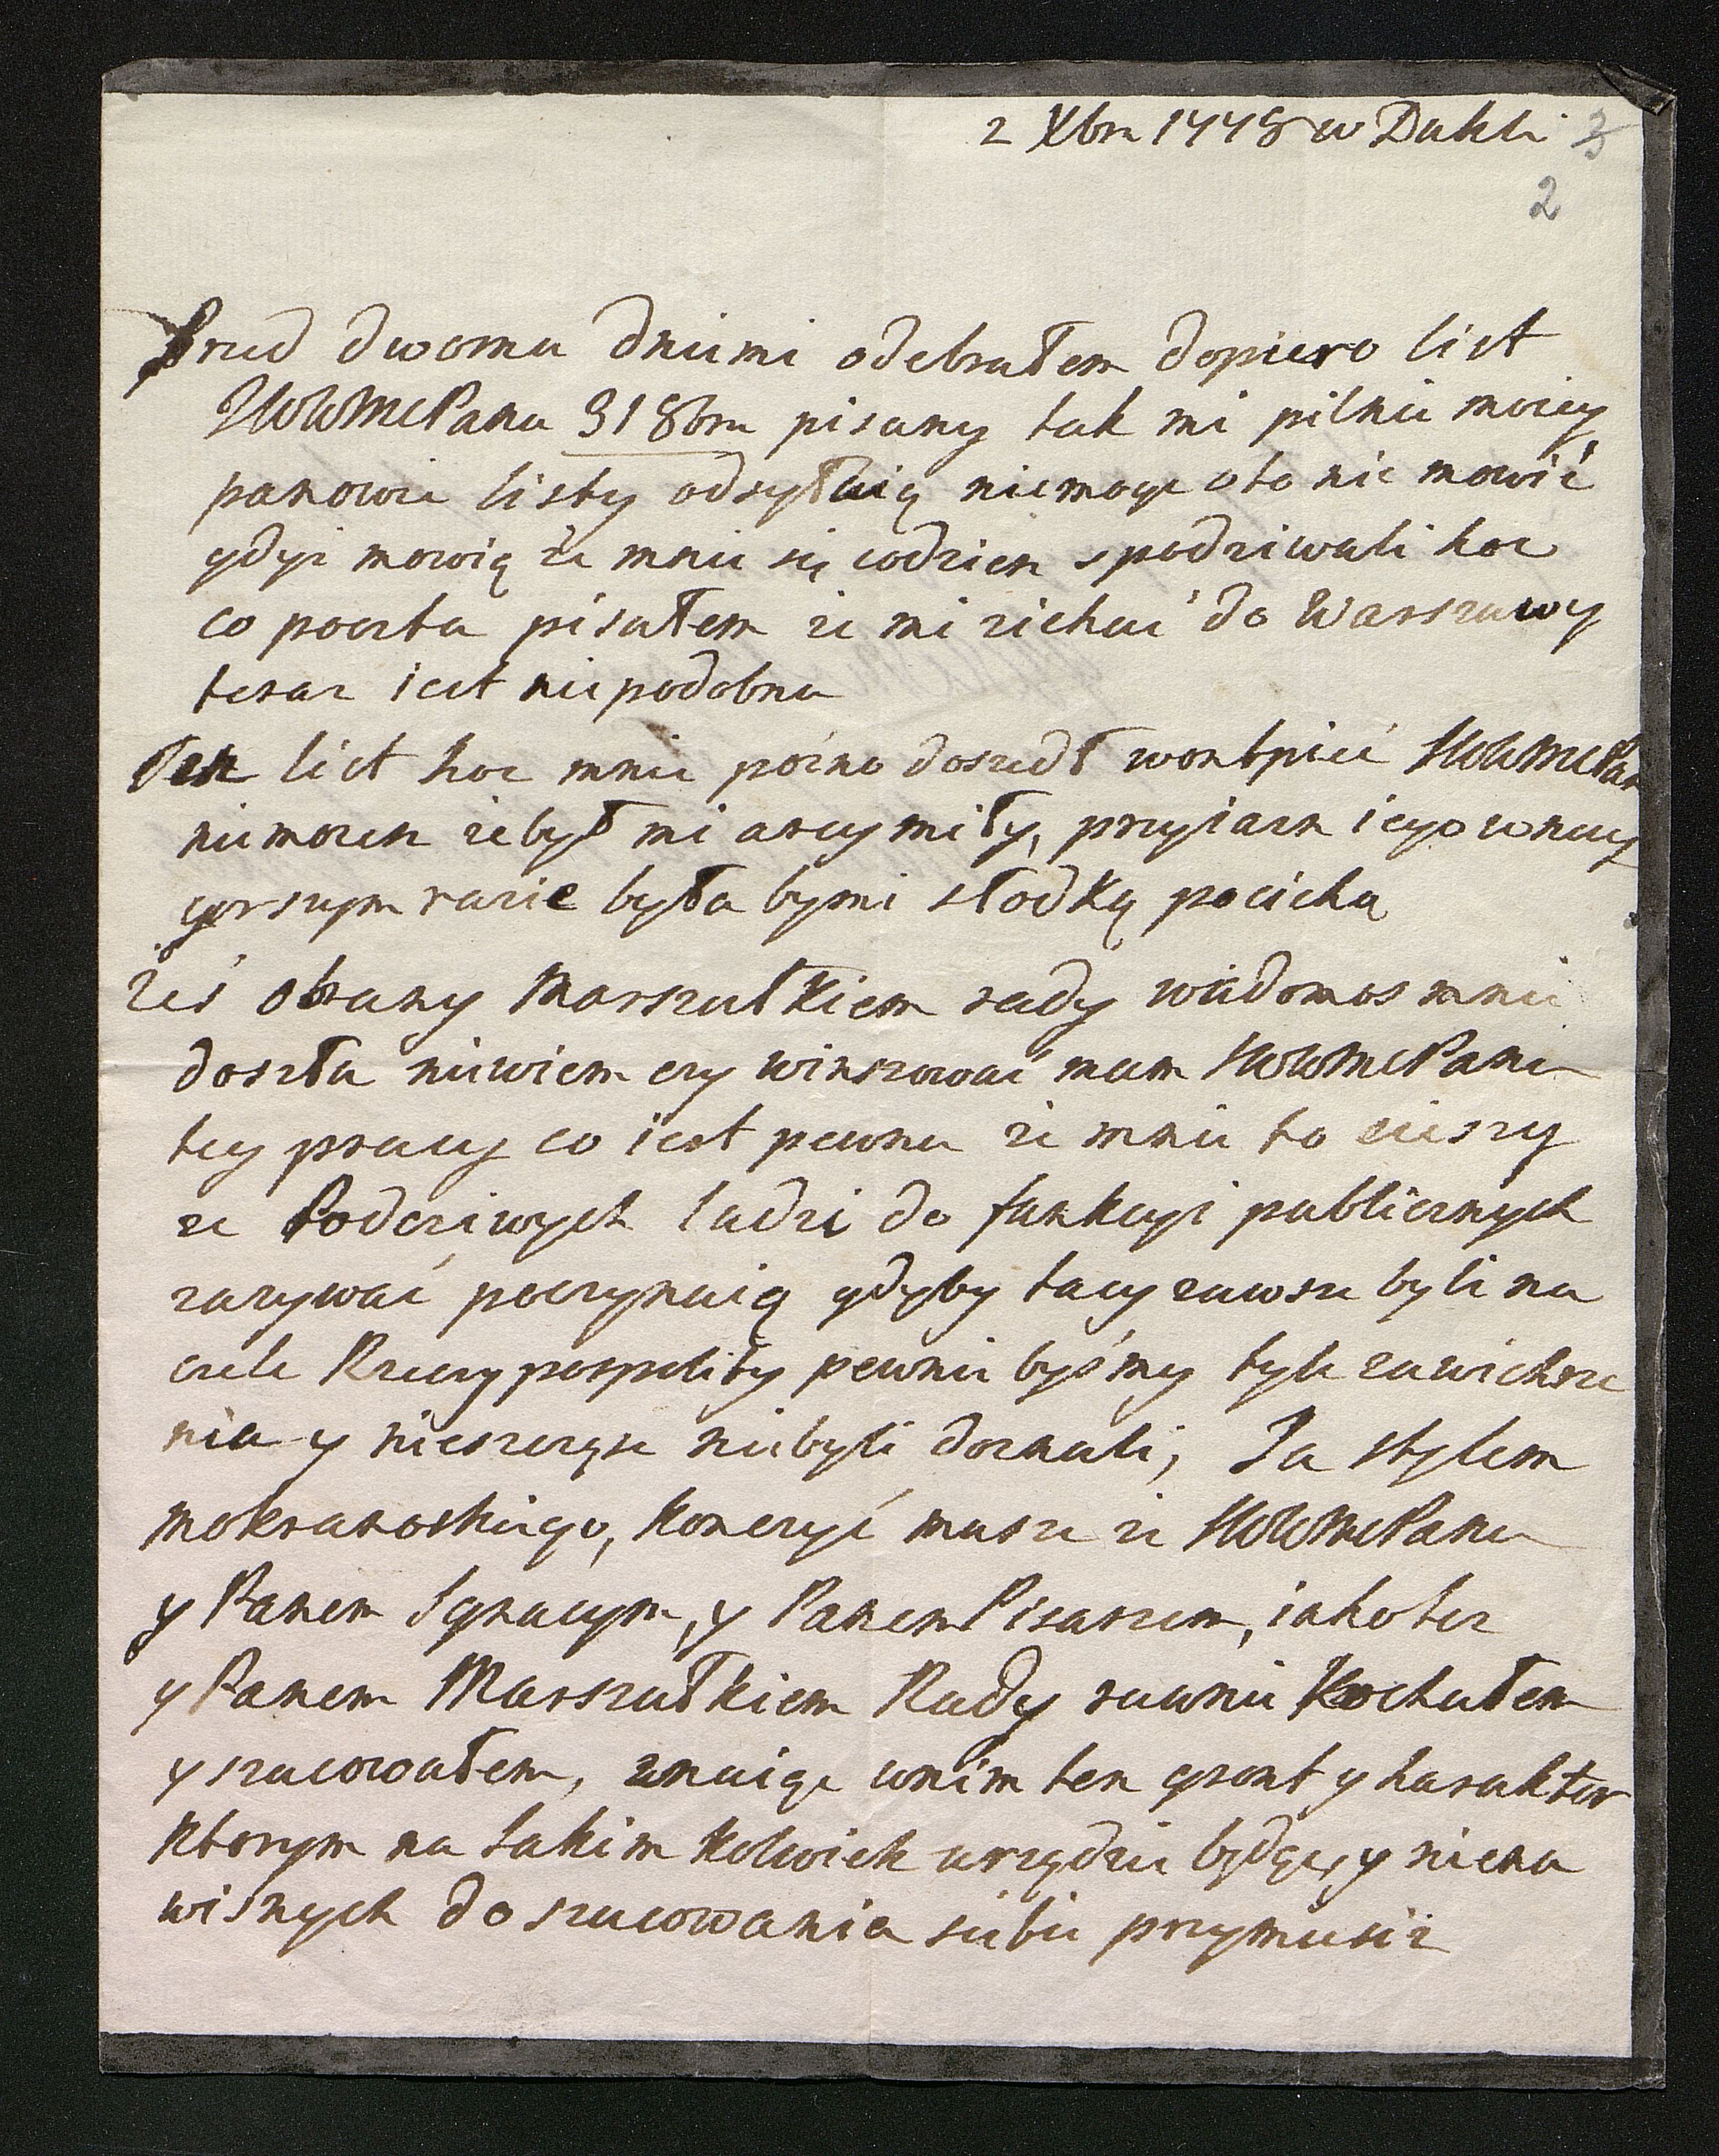 2 Xbra 1778 w Dukli 3
2
Przed dwoma dniami odebrałem dopiero list
JWWMcPana 31 8bra pisany tak mi pilnie moiey
panowie listy odsyłaią niemogę oto nic mowić
gdyż mowią że mnie się codzien spodziwali hoc
co poczta pisałem że mi ziechać do Warszawy
teraz iest niepodobna
Ten list hoc mnie poźno doszedł wontpić JWWMcPan
niemożesz żebył mi arcymiły, przyiazn iego w nay
gorszym razie była bymi słodką pociechą
żeś obrany Marszałkiem rady wiadomos mnie
doszła niewiem czy winszować mam JWWMcPanu
tey pracy co iest pewna że mnie to cieszy
że Podcziwych ludzi do funkcyi publicznych
zazywać poczynaią gdyby tacy zawsze byli na
czele Rzeczypospolity pewnie byśmy tyle zawichrze
nia y niesczęsc niebyli doznali, Ja stylem
mokranoskiego, konczyć musze że JWWMcPana
y Panem Ignacym, y Panem Pisarzem, iakotez
y Panem Marszałkiem Rady rawnie Kochałem
y szacowałem, znaiąc wnim ten gront y harakter
Ktorym na Jakim kolwiek urzędzie będący niena
wisnych do szacowania siebie przymusisz